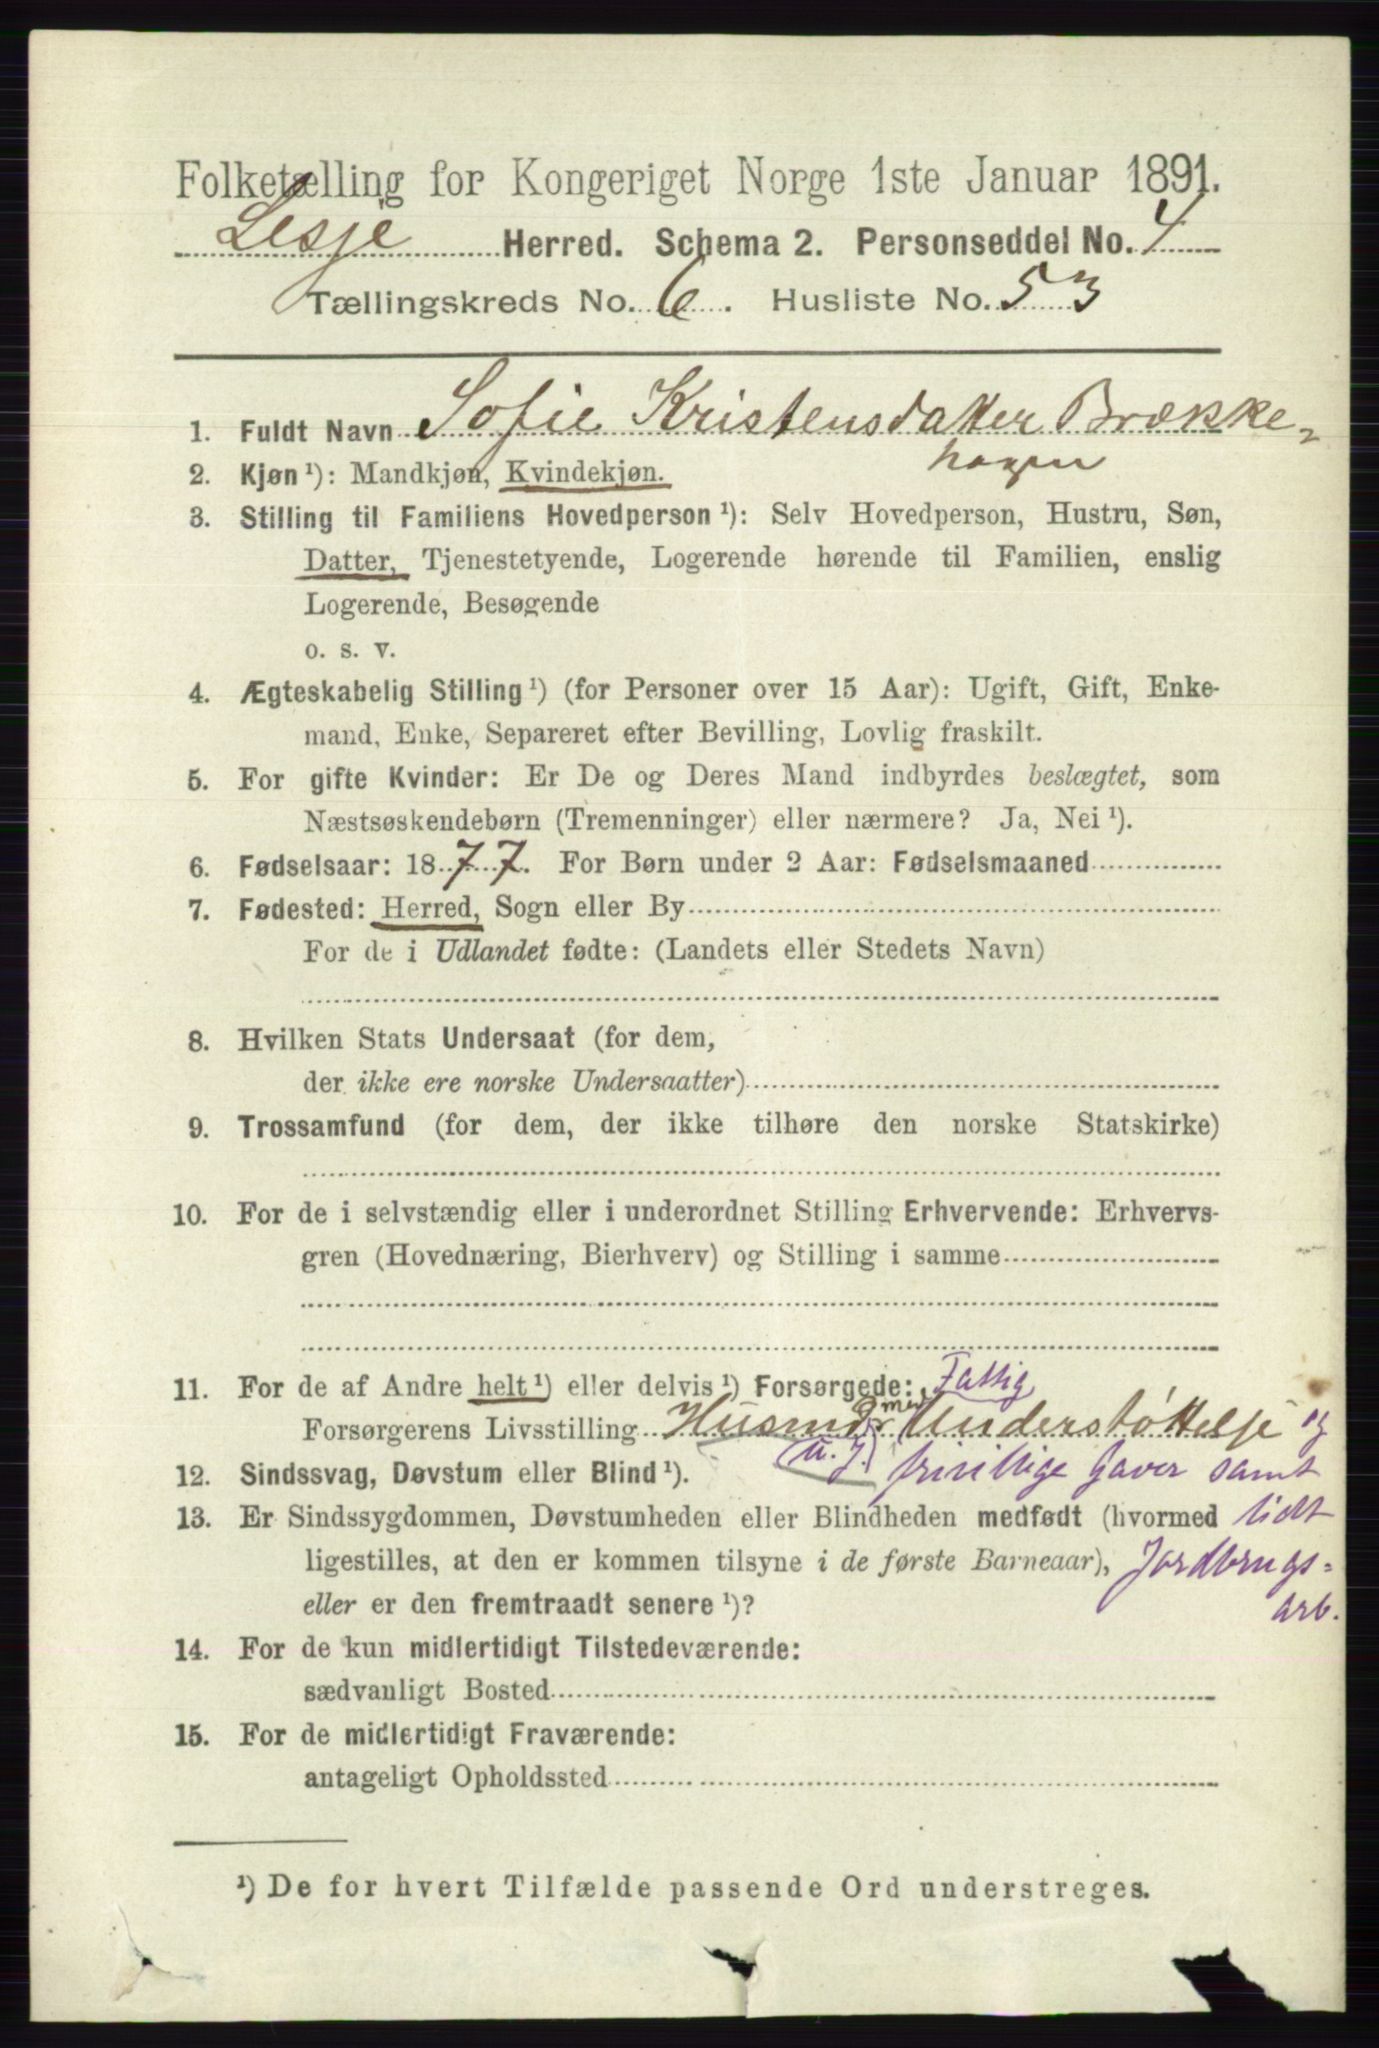 Folketælling for Kongeriget Norge 1ste Januar 1891.
Lesje Herred. Schema 2. Personseddel No. 4
Tællingskreds No. 6. Husliste No. 53
1. Fuldt Navn Sofie Kristensdatter Brække-
hagen
2. Kjøn ¹): Mandkjøn, Kvindekjøn.
3. Stilling til Familiens Hovedperson ¹): Selv Hovedperson, Hustru, Søn,
Datter, Tjenestetyende, Logerende hørende til Familien, enslig
Logerende, Besøgende
o. s. v.
4. Ægteskabelig Stilling ¹) (for Personer over 15 Aar): Ugift, Gift, Enke-
mand, Enke, Separeret efter Bevilling, Lovlig fraskilt.
5. For gifte Kvinder: Er De og Deres Mand indbyrdes beslægtet, som
Næstsøskendebørn (Tremenninger) eller nærmere? Ja, Nei ¹).
6. Fødselsaar: 1877. For Børn under 2 Aar: Fødselsmaaned
7. Fødested: Herred, Sogn eller By
For de i Udlandet fødte: (Landets eller Stedets Navn)
8. Hvilken Stats Undersaat (for dem,
der ikke ere norske Undersaatter)
9. Trossamfund (for dem, der ikke tilhøre den norske Statskirke)
10. For de i selvstændig eller i underordnet Stilling Erhvervende: Erhvervs-
gren (Hovednæring, Bierhverv) og Stilling i samme
11. For de af Andre helt ¹) eller delvis ¹) Forsørgede: Fattig
Forsørgerens Livsstilling Husmd med Understøttelse og
12. Sindssvag, Døvstum eller Blind ¹). u. J. frivillige Gaver samt
13. Er Sindssygdommen, Døvstumheden eller Blindheden medfødt (hvormed lidt
ligestilles, at den er kommen tilsyne i de første Barneaar), Jordbrugs-
eller er den fremtraadt senere ¹)? arb.
14. For de kun midlertidigt Tilstedeværende:
sædvanligt Bosted
15. For de midlertidigt Fraværende:
antageligt Opholdssted
¹) De for hvert Tilfælde passende Ord understreges.